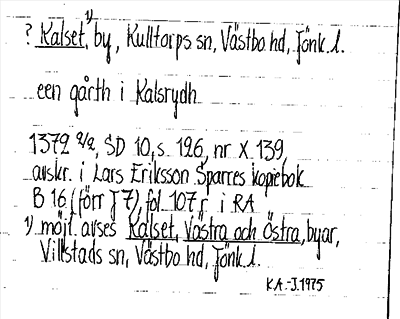 ? Kalset,¹⁾ by, Kulltorps sn, Västbo hd, Jönk. l.
een gårth i Kalsrydh
1372 2/2, SD 10, s. 126, nr X 139,
avskr. i Lars Eriksson Sparres kopiebok
B 16 (förr J 7), fol. 107 r. i RA
1) möjl. avses Kalset, Västra och Östra, byar,
Villstads sn, Västbo hd, Jönk. l.
K.A.-J. 1975